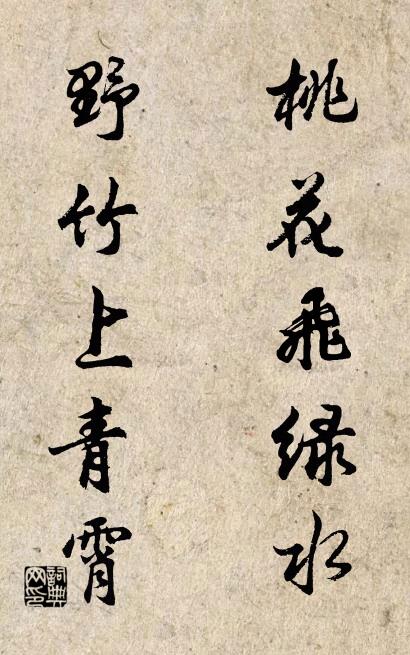 桃花飛绿水
野竹上青霄
詞典网印